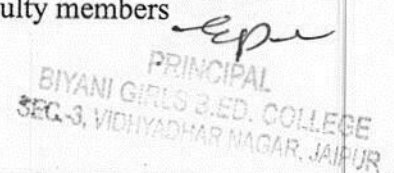 ulty members
PRINCIPAL
BIYANI GIRLS B.ED. COLLEGE
SEC.-3, VIDHYADHAR NAGAR, JAIPUR